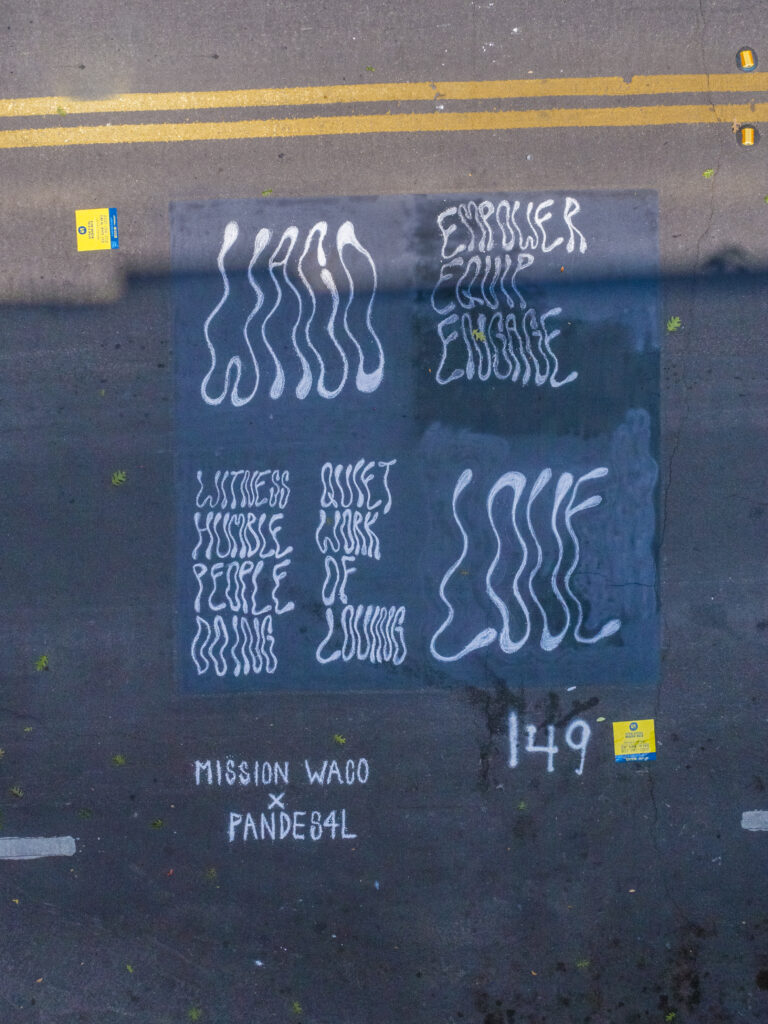 WACO
EMPOWER
EQUIP
ENGAGE
WITNESS
HUMBLE
PEOPLE
DOING
QUIET
WORK
OF
LOVING
LOVE
149
MISSION WACO
X
PANDES4L